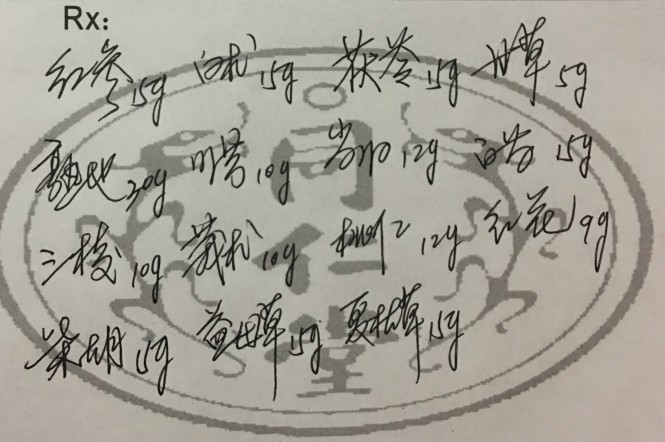 Rx:
红参15g 白术15g 茯苓15g 甘草5g
熟地30g 川芎10g 当归12g 白芍15g
三棱10g 莪术10g 桃仁12g 红花9g
柴胡15g 益母草15g 夏枯草15g
同仁堂